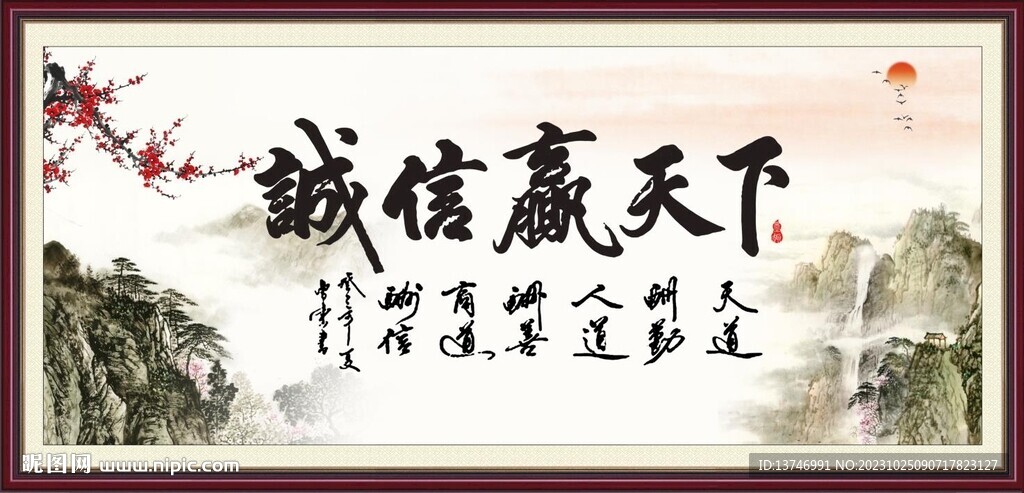 誠信贏天下
天道
酬勤
人道
酬善
商道
酬信
癸卯年夏
昵图网 www.nipic.com
ID:13746991 NO:20231025090717823127